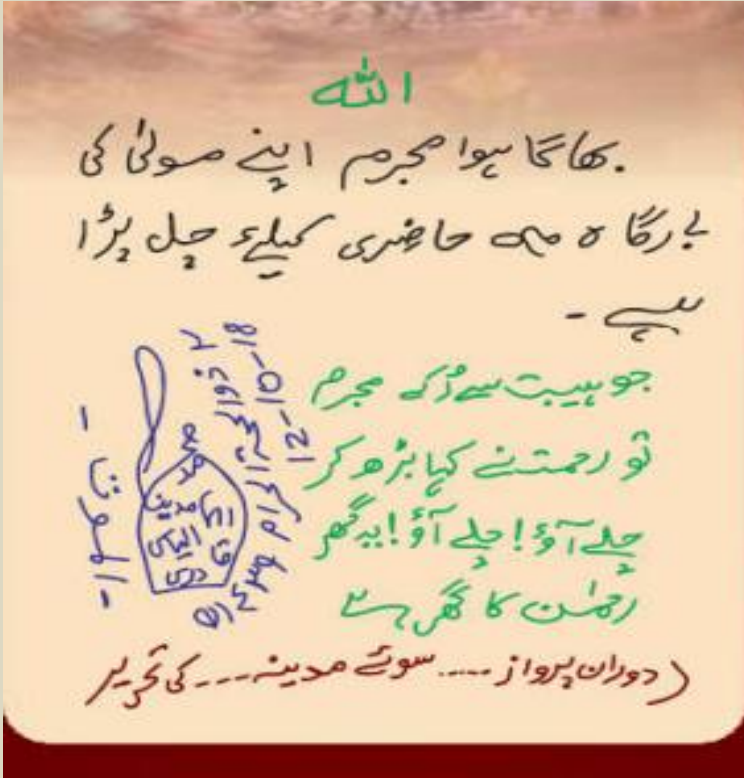 اللہ
بھاگا ہوا مجرم اپنے مولیٰ کی
بارگاہ میں حاضری کیلئے چل پڑا
ہے ۔
جو ہیبت سے رُکے مجرم
تو رحمت نے کہا بڑھ کر
چلے آؤ! چلے آؤ! یہ گھر
رحمٰن کا گھر ہے
12-10-18
(دوران پرواز ..... سوئے مدینہ --- کی تحریر